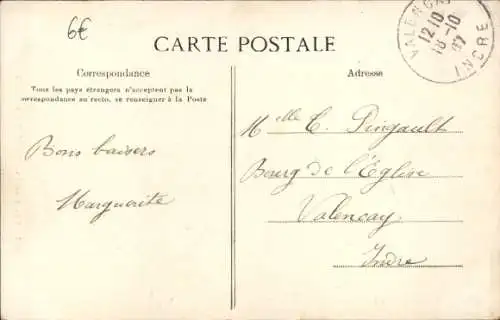 6€
VALENCAY
12-10
18-10
07
INDRE
CARTE POSTALE
Correspondance
Tous les pays étrangers n'acceptent pas la
correspondance au recto, se renseigner à la Poste
Adresse
Bons baisers
Marguerite
Melle E. Pingault
Bourg de l'Eglise
Valencay
Indre